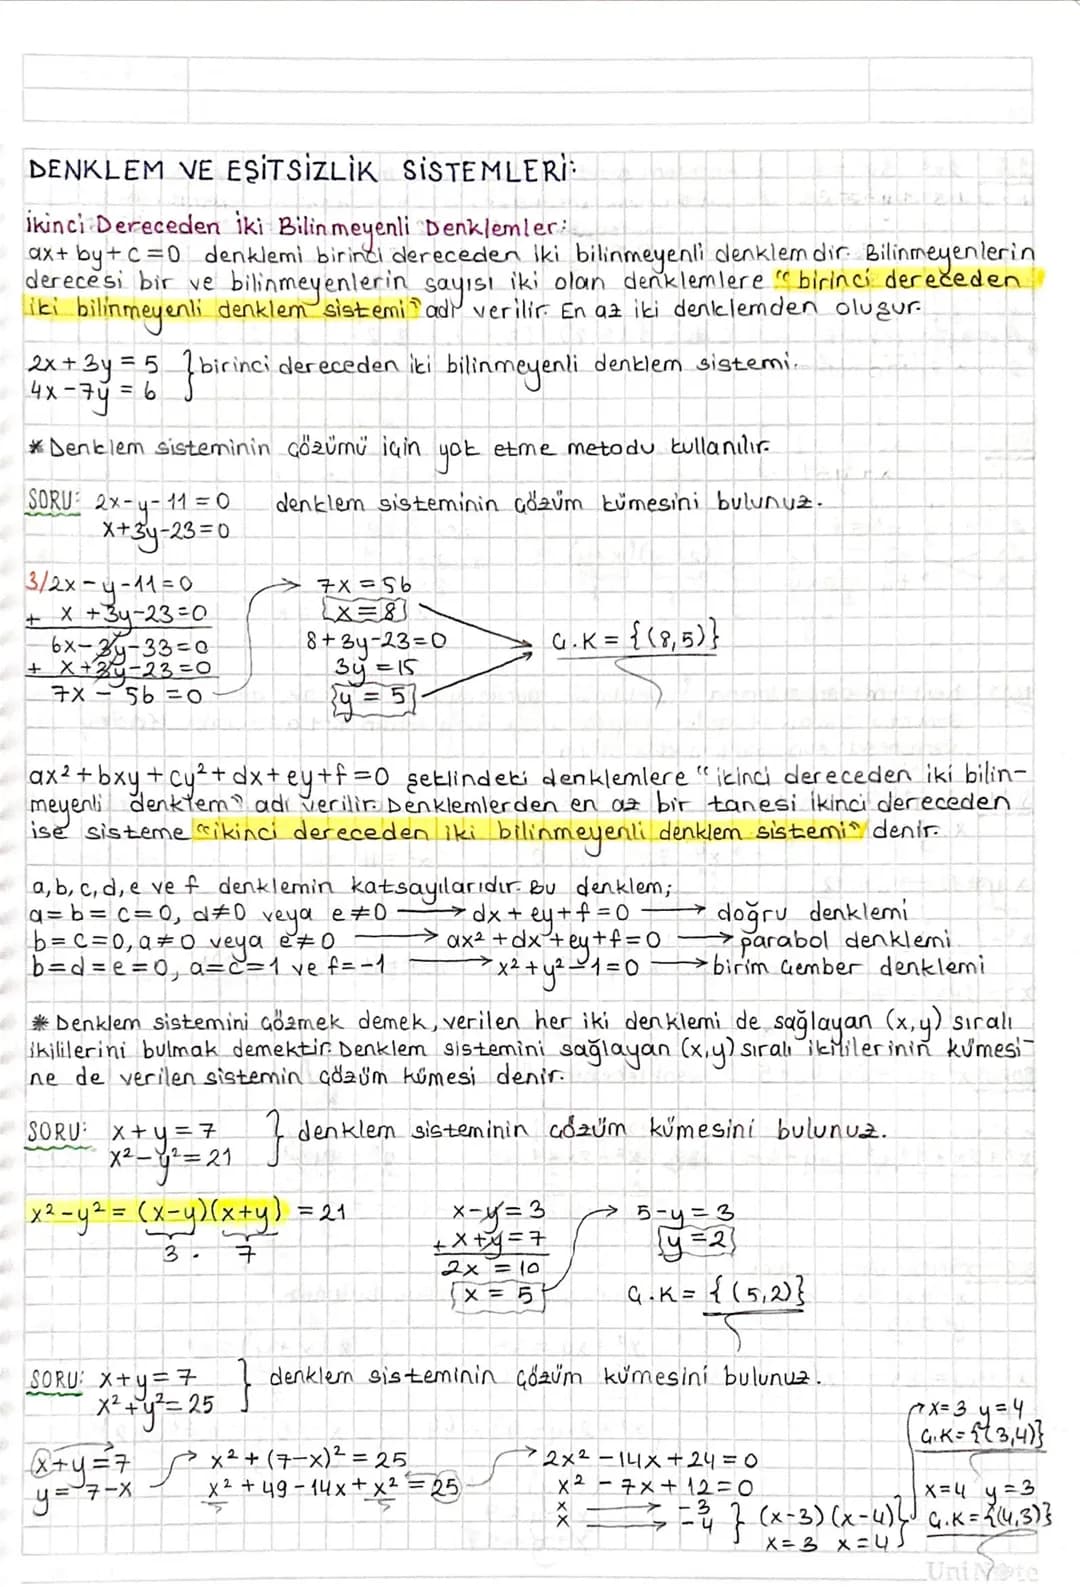 DENKLEM VE EŞİTSİZLİK SİSTEMLERİ:
İkinci Dereceden İki Bilinmeyenli Denklemler:
ax+by+c=0 denklemi birinci dereceden iki bilinmeyenli denklemdir. Bilinmeyenlerin
derecesi bir ve bilinmeyenlerin sayısı iki olan denklemlere "birinci dereceden
iki bilinmeyenli denklem sistemi" adı verilir. En az iki denklemden oluşur.
2x+3y=5 } birinci dereceden iki bilinmeyenli denklem sistemi.
4x-7y=6
* Denklem sisteminin çözümü için yok etme metodu kullanılır.
SORU: 2x-y-11=0 denklem sisteminin çözüm kümesini bulunuz.
x+3y-23=0
3/2x-y-11=0
+ x+3y-23=0
6x-3y-33=0
+ x+3y-23=0
7x-56=0
→ 7x=56
x=8
8+3y-23=0
3y=15
y=5
Ç.K={(8,5)}
ax²+bxy+cy²+dx+ey+f=0 şeklindeki denklemlere "ikinci dereceden iki bilin-
meyenli denklem" adı verilir. Denklemlerden en az bir tanesi ikinci dereceden
ise sisteme "ikinci dereceden iki bilinmeyenli denklem sistemi" denir.
a,b,c,d,e ve f denklemin katsayılarıdır. Bu denklem;
a=b=c=0, d≠0 veya e≠0 → dx+ey+f=0 → doğru denklemi
b=c=0, a≠0 veya e≠0 → ax²+dx+ey+f=0 → parabol denklemi
b=d=e=0, a=c=1 ve f=-1 → x²+y²-1=0 → birim çember denklemi
* Denklem sistemini çözmek demek, verilen her iki denklemi de sağlayan (x,y) sıralı
ikililerini bulmak demektir. Denklem sistemini sağlayan (x,y) sıralı ikililerinin kümesi-
ne de verilen sistemin çözüm kümesi denir.
SORU: x+y=7 } denklem sisteminin çözüm kümesini bulunuz.
x²-y²=21
x²-y²=(x-y)(x+y)=21
3 . 7
x-y=3
+ x+y=7
2x=10
x=5
→ 5-y=3
y=2
Ç.K={(5,2)}
SORU: x+y=7 } denklem sisteminin çözüm kümesini bulunuz.
x²+y²=25
x+y=7
y=7-x
→ x²+(7-x)²=25
x²+49-14x+x²=25
→ 2x²-14x+24=0
x²-7x+12=0
x → -3
x → -4
} (x-3)(x-4)
x=3 x=4
→ x=3 y=4
Ç.K={(3,4)}
x=4 y=3
Ç.K={(4,3)}
UniNote